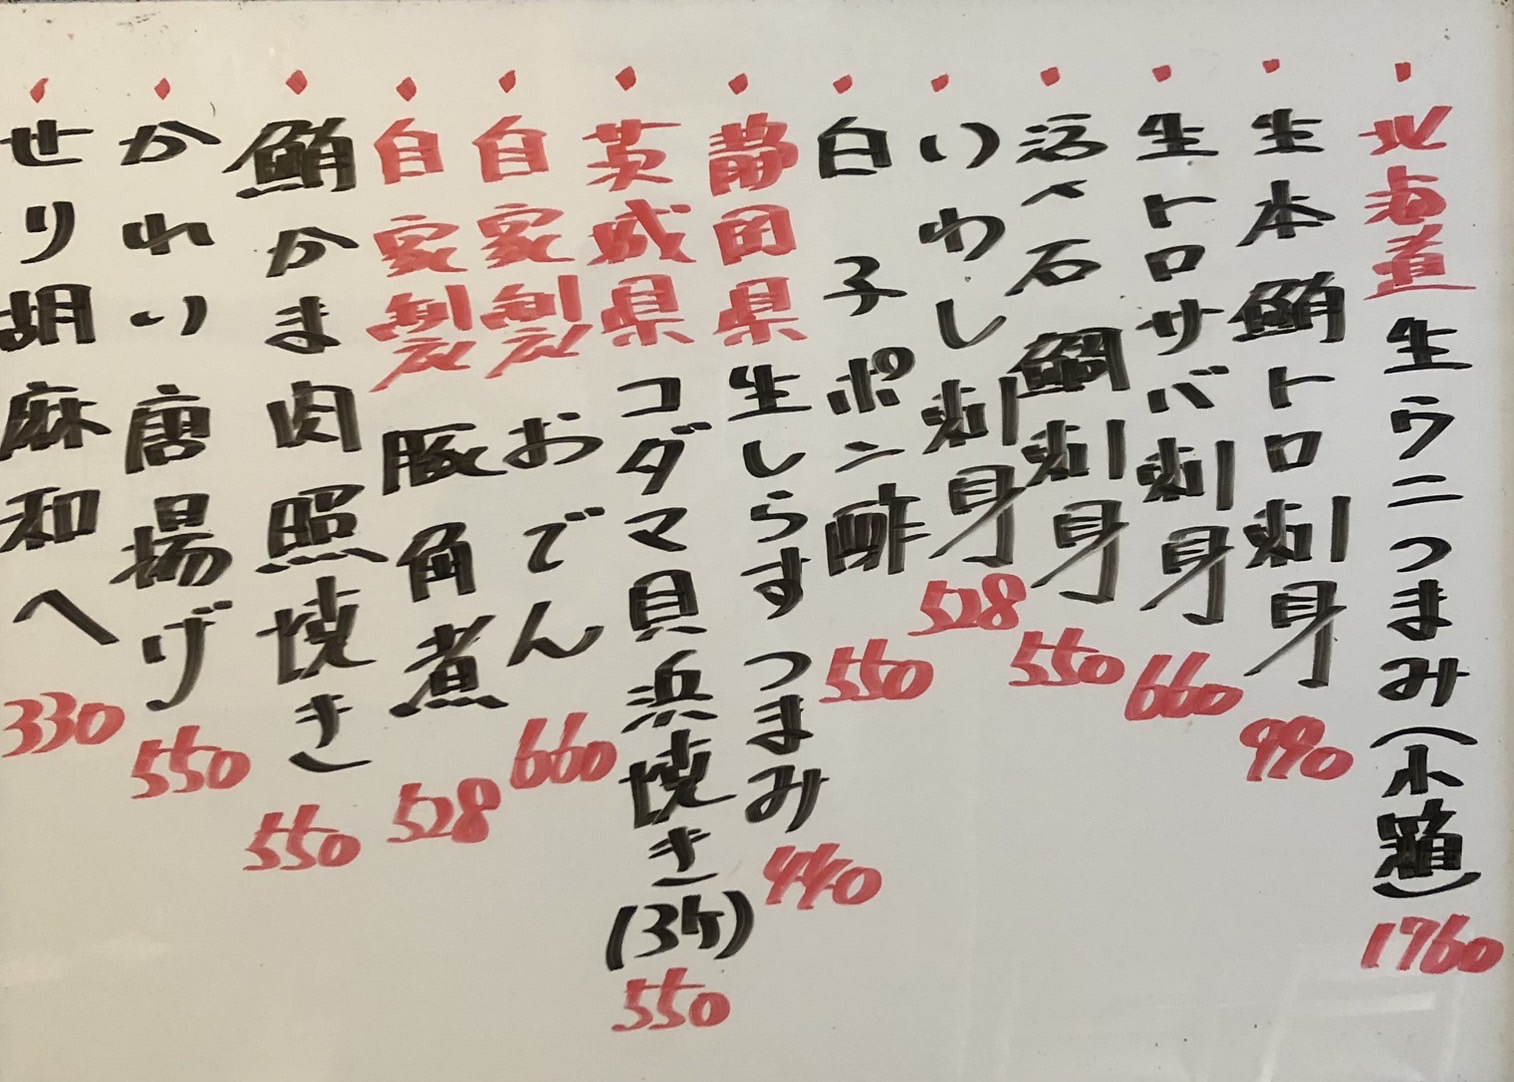 北海道生ウニつまみ(小箱)1760
生本鮪トロ刺身990
生トロサバ刺身660
活〆石鯛刺身550
いわし刺身528
白子ポン酢550
静岡県生しらすつまみ440
茨城県コダマ貝浜焼き(3ケ)550
自家製おでん660
自家製豚角煮528
鮪かま肉照焼き550
かれい唐揚げ550
せり胡麻和へ330